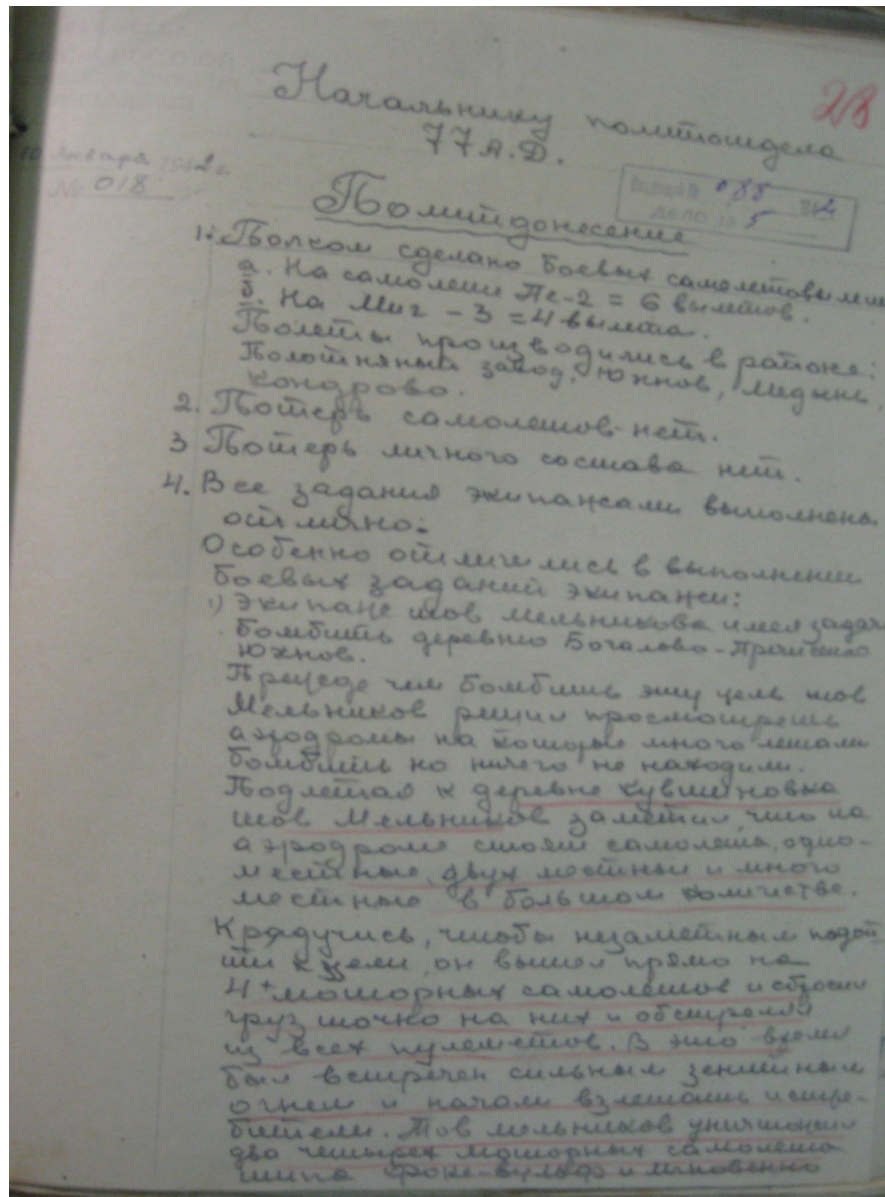 28
Начальнику политотдела
77 А.Д.
10 января 1942 г.
№ 018
дело № 5
Политдонесение
1. Полком сделано боевых самолетовылет
а. На самолете Пе-2 = 6 вылетов.
б. На Миг-3 = 4 вылета.
Полеты производились в районе:
Полотняный завод, Юхнов, Медынь,
Кондрово.
2. Потерь самолетов-нет.
3 Потерь личного состава нет.
4. Все задания экипажами выполнены
отлично.
Особенно отличились в выполнении
боевых заданий экипажи:
1) Экипаж тов Мельникова имея задачу
бомбить деревню
Юхнов.
Прежде чем бомбить эту цель тов
Мельников решил просмотреть
аэродромы на которые много летали
бомбить но ничего не находили.
Подлетая к деревне Кувшиновка
тов Мельников заметил что на
аэродроме стоят самолеты, одно-
местные, двух местные и много
местные в большом количестве.
Крадучись, чтобы незаметным подой
ти к цели, он вышел прямо на
4х моторных самолетов и сбросил
груз точно на них и обстрелял
из всех пулеметов. В это время
был встречен сильным зенитным
огнем и начали взлетать истре-
бители. Тов Мельников уничтожил
два четырех моторных самолета
типа Фоке-вульф и мгновенно